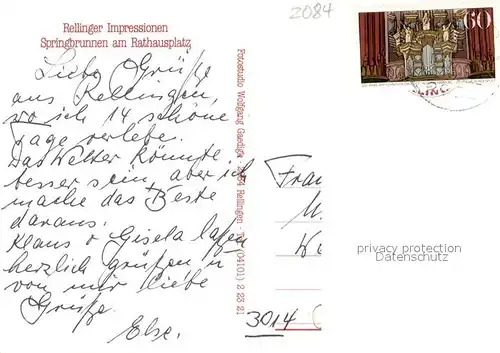 Rellinger Impressionen
Springbrunnen am Rathausplatz
Liebe Grüße
aus Rellingen,
wo ich 14 schöne
Tage verlebe.
Das Wetter könnte
besser sein, aber ich
mache das Beste
daraus.
Klaus + Gisela lassen
herzlich grüßen u
von mir liebe
Grüße.
Else.
Fotostudio Wolfgang Gaedigk 2084 Rellingen Tel. (04101) 2 23 21
2084
60
LING
Frau
3014
privacy protection
Datenschutz